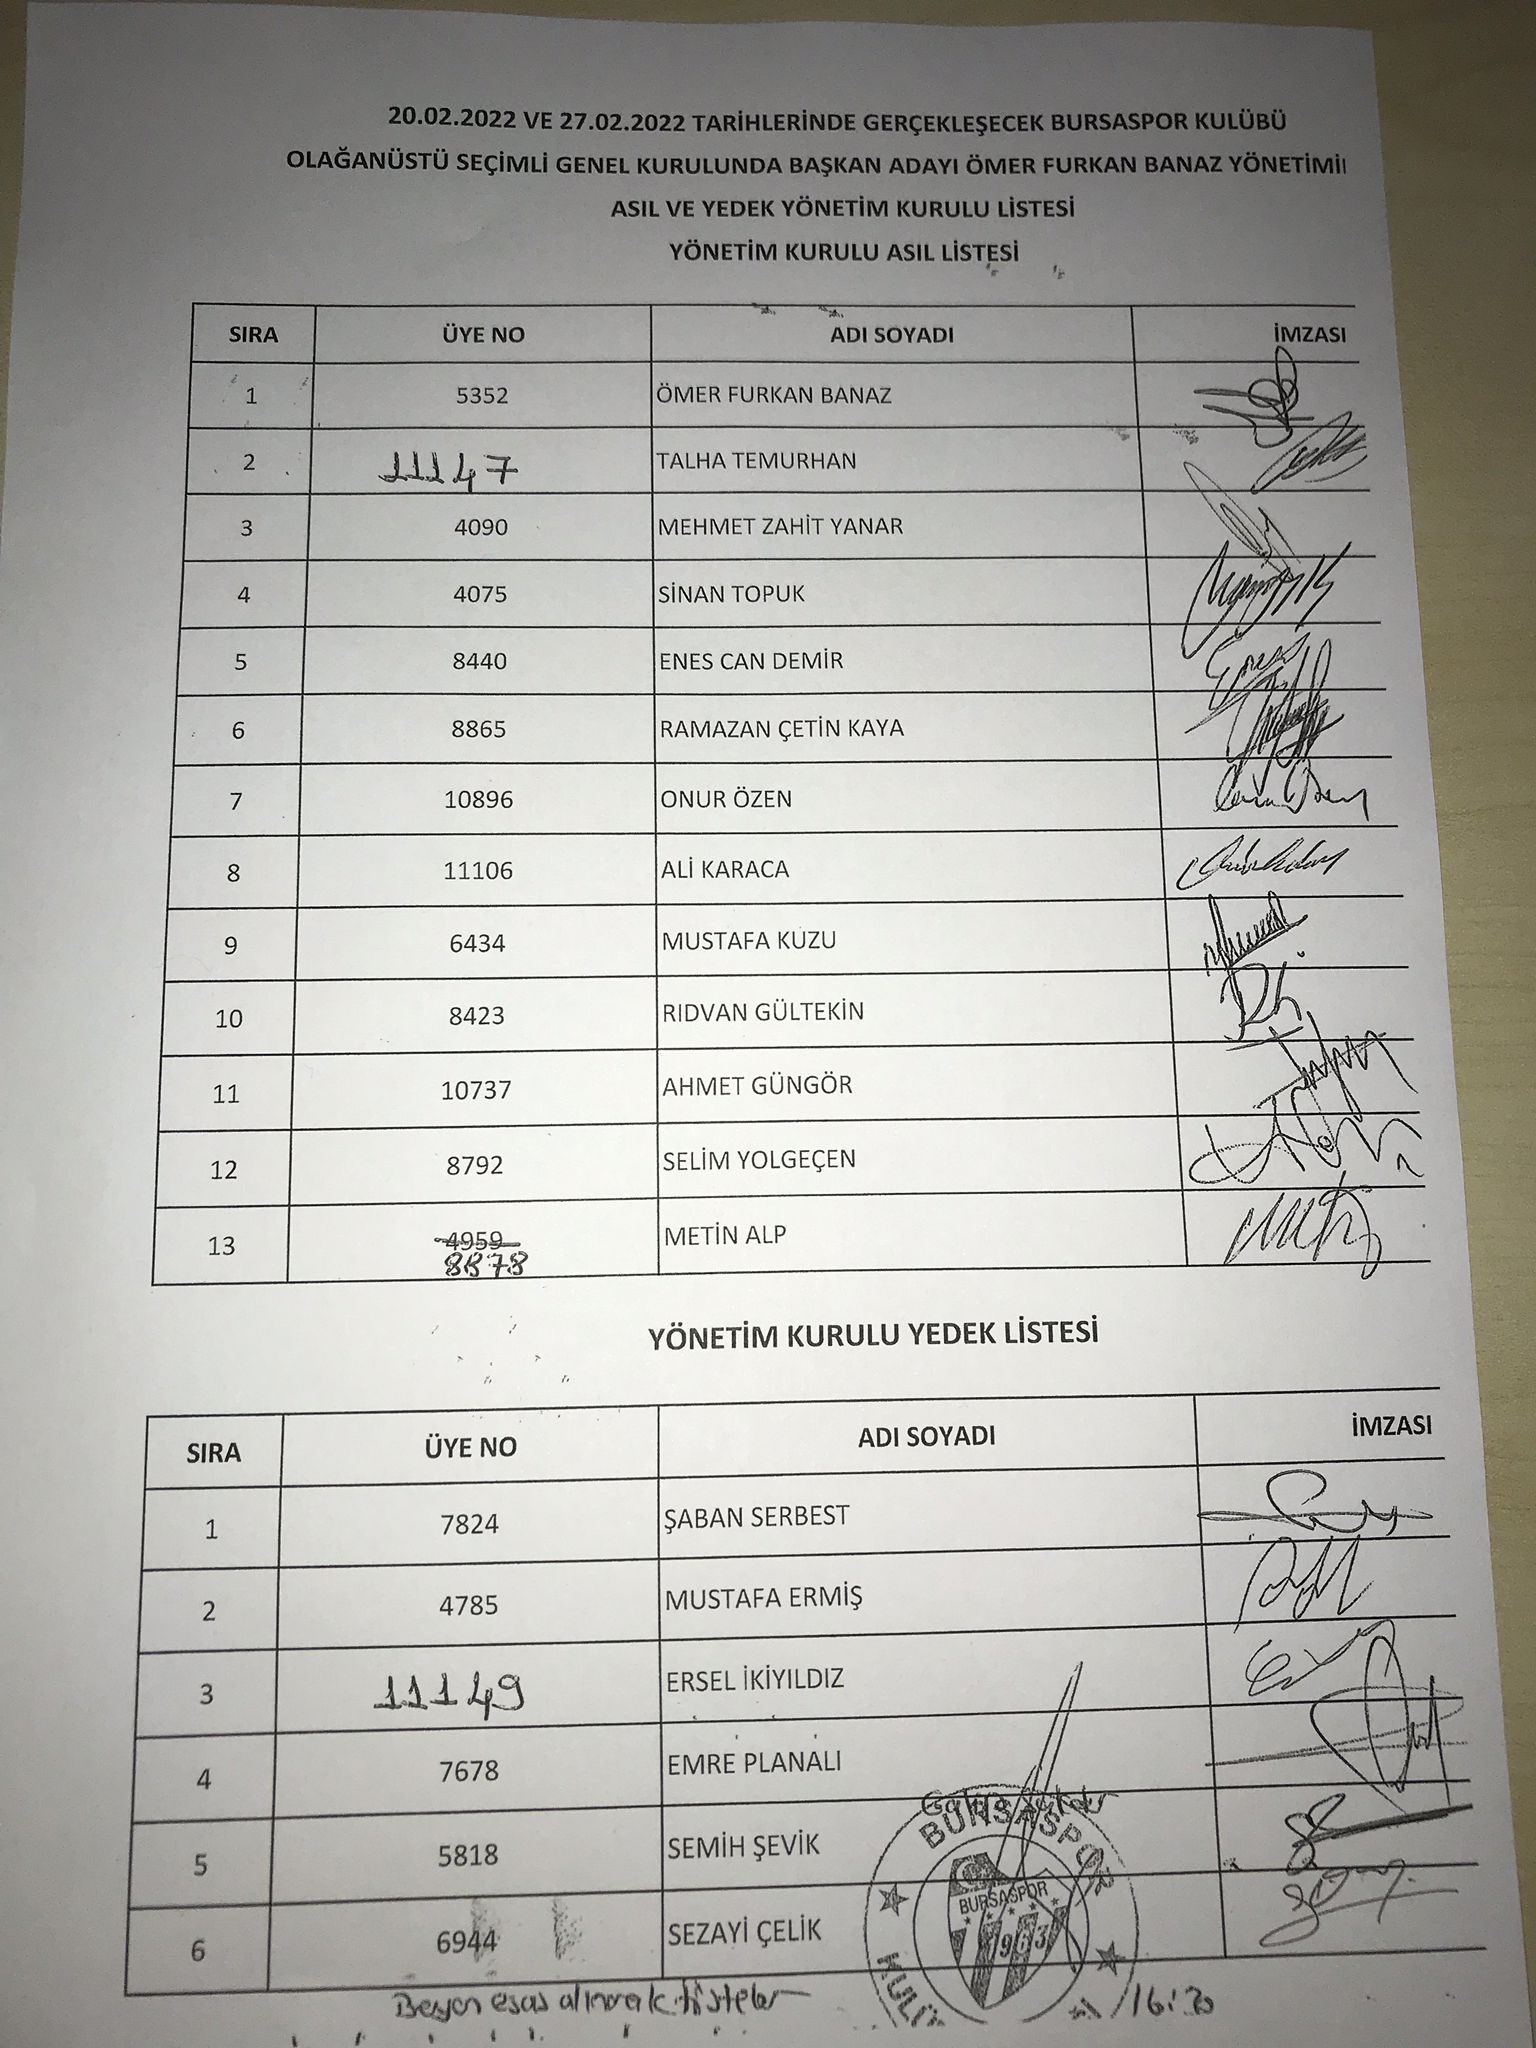 20.02.2022 VE 27.02.2022 TARİHLERİNDE GERÇEKLEŞECEK BURSASPOR KULÜBÜ
OLAĞANÜSTÜ SEÇİMLİ GENEL KURULUNDA BAŞKAN ADAYI ÖMER FURKAN BANAZ YÖNETİMİ
ASIL VE YEDEK YÖNETİM KURULU LİSTESİ
YÖNETİM KURULU ASIL LİSTESİ
SIRA ÜYE NO ADI SOYADI İMZASI
1 5352 ÖMER FURKAN BANAZ
2 11147 TALHA TEMURHAN
3 4090 MEHMET ZAHİT YANAR
4 4075 SİNAN TOPUK
5 8440 ENES CAN DEMİR
6 8865 RAMAZAN ÇETİN KAYA
7 10896 ONUR ÖZEN
8 11106 ALİ KARACA
9 6434 MUSTAFA KUZU
10 8423 RIDVAN GÜLTEKİN
11 10737 AHMET GÜNGÖR
12 8792 SELİM YOLGEÇEN
13 4959 METİN ALP
8878
YÖNETİM KURULU YEDEK LİSTESİ
SIRA ÜYE NO ADI SOYADI İMZASI
1 7824 ŞABAN SERBEST
2 4785 MUSTAFA ERMİŞ
3 11149 ERSEL İKİYILDIZ
4 7678 EMRE PLANALI
5 5818 SEMİH ŞEVİK
6 6944 SEZAYİ ÇELİK
BURSASPOR
BURSASPOR
1963
KULÜ
Beyan esas alınarak listeler
16:30